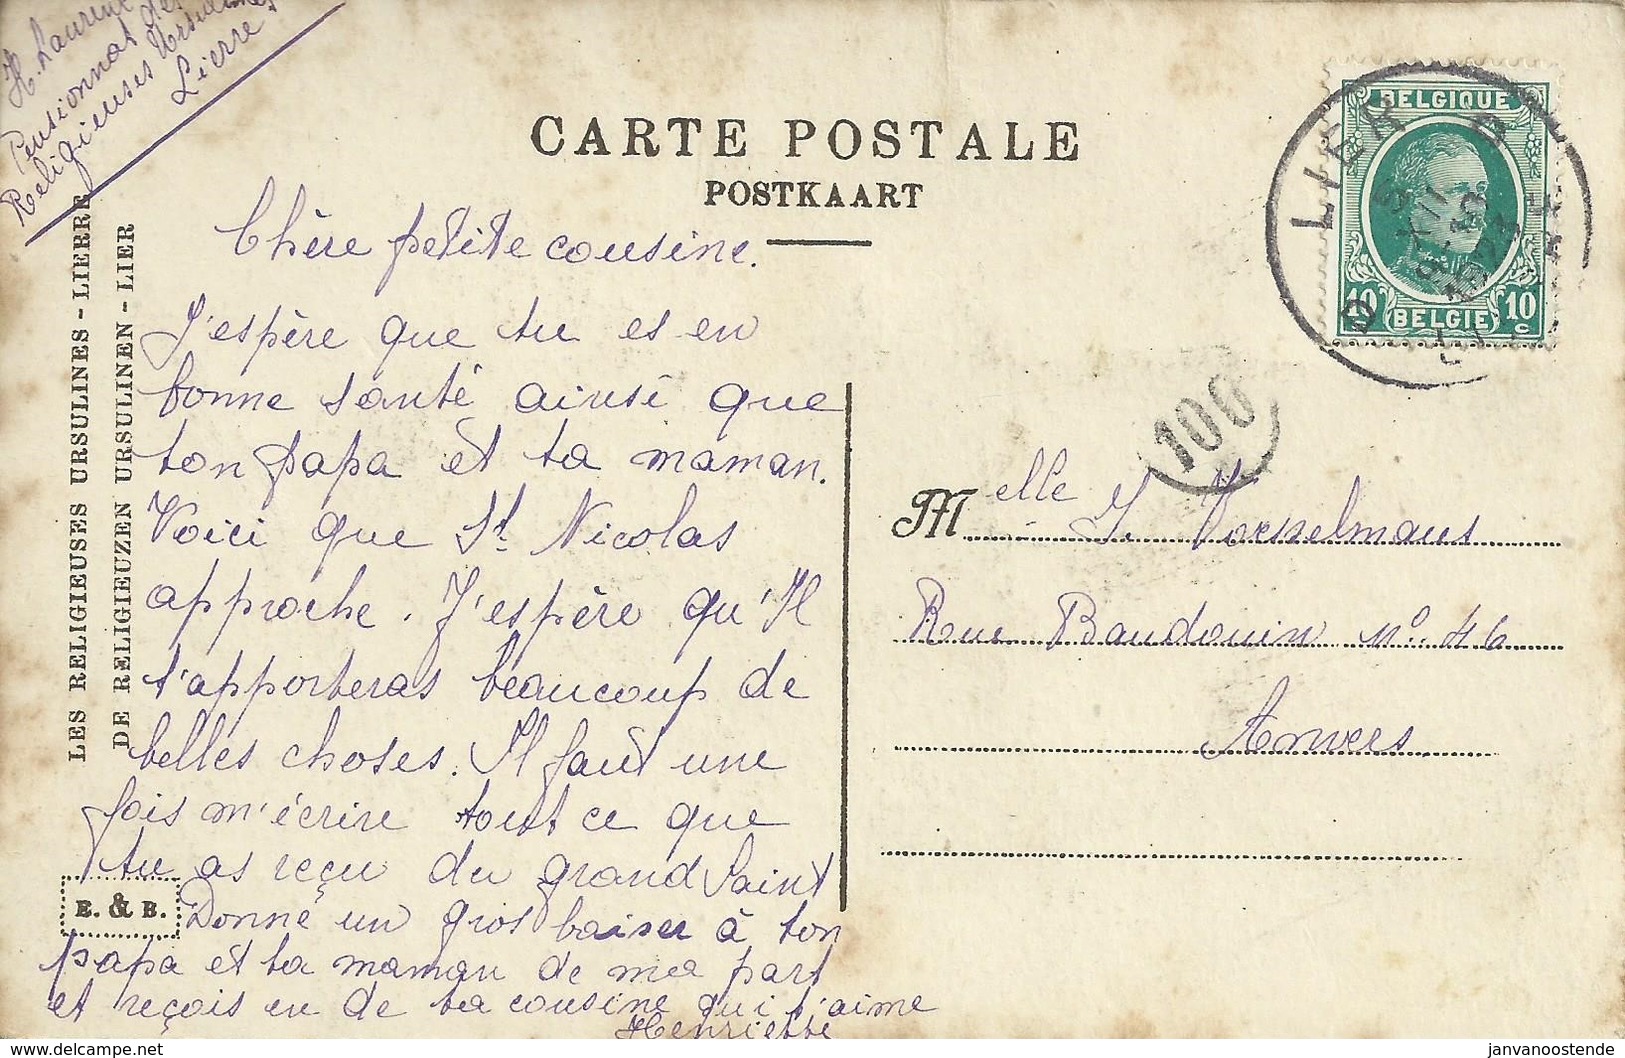 H. Laurent
Pensionnat des
Religieuses Ursulines
Lierre
CARTE POSTALE
POSTKAART
LES RELIGIEUSES URSULINES - LIERRE
DE RELIGIEUZEN URSULINEN - LIER
BELGIQUE
LIER
1923
10 10
c
BELGIE
100
Chère petite cousine.
J'espère que tu es en
bonne santé ainsi que
ton papa et ta maman.
Voici que St. Nicolas
approche. J'espère qu'Il
t'apporteras beaucoup de
belles choses. Il faut une
fois m'écrire tout ce que
tu as reçu du grand Saint
Donne un gros baiser à ton
papa et ta maman de ma part
et reçois en de ta cousine qui t'aime
Henriette
E. & B.
Melle J. Vorsselmans
Rue Baudouin no. 46
Anvers.
delcampe.net
janvanoostende